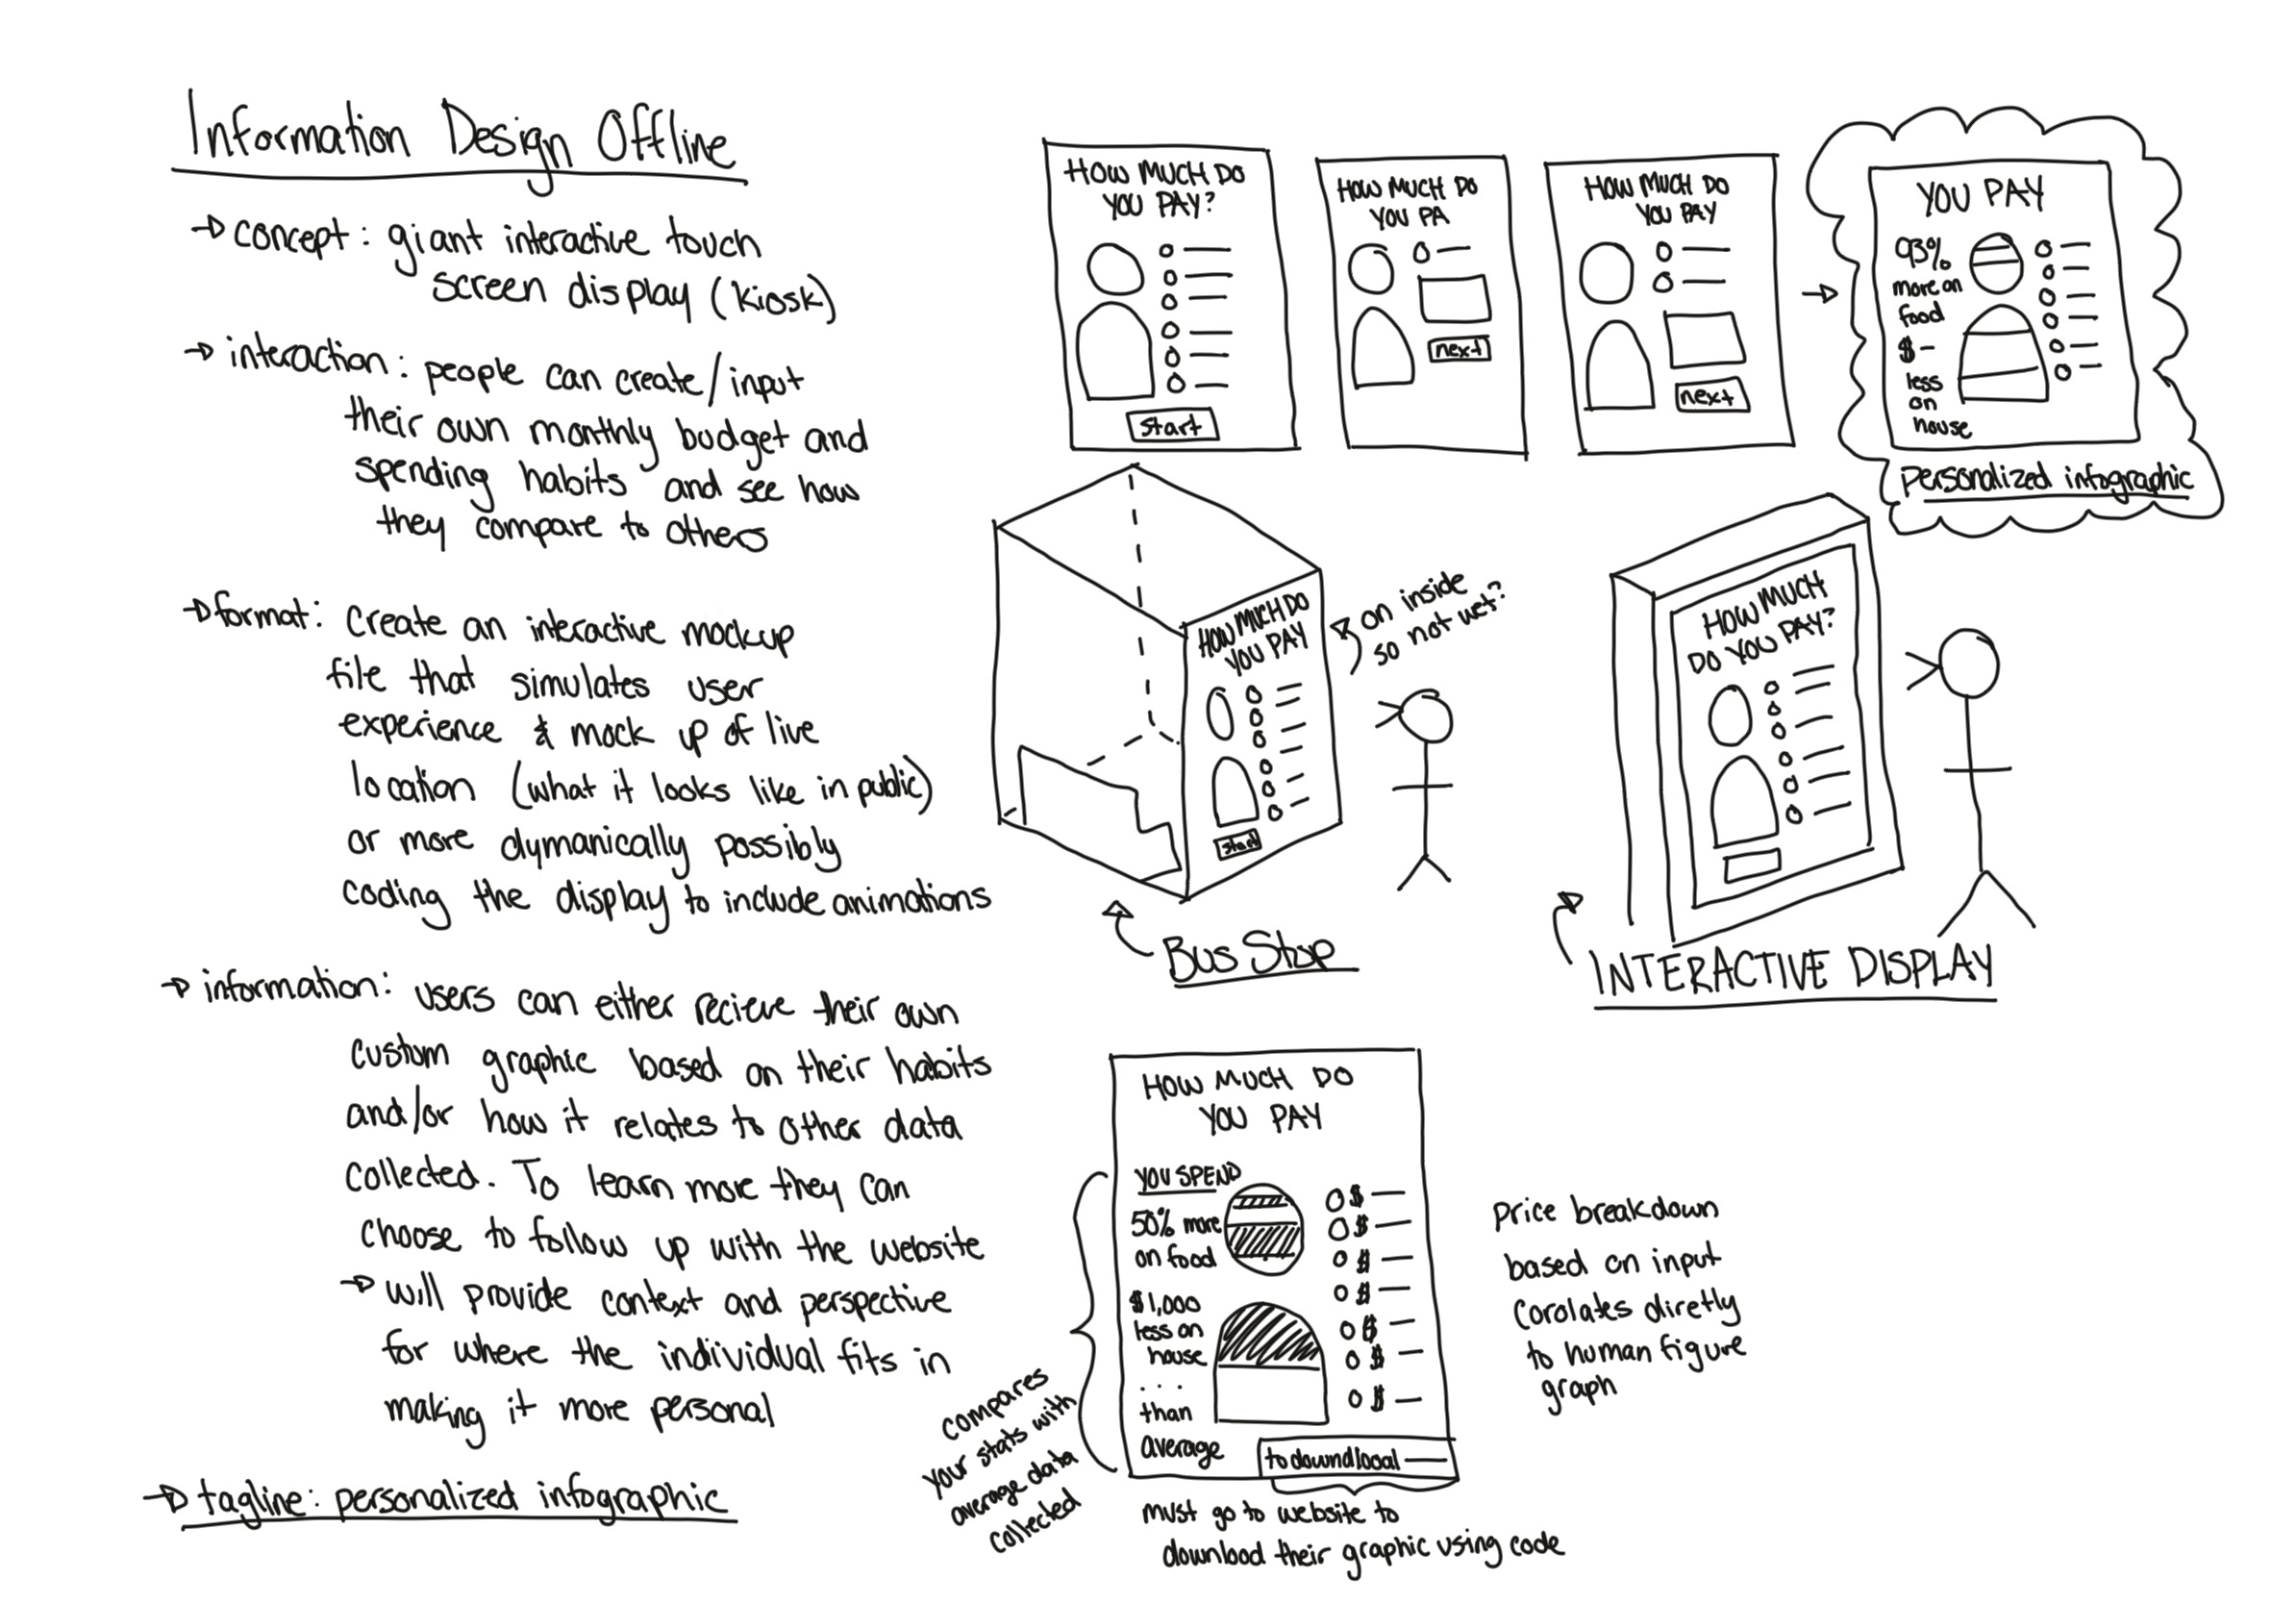 Information Design Offline
→ concept: giant interactive touch
screen display (kiosk)
→ interaction: people can create/input
their own monthly budget and
spending habits and see how
they compare to others
→ format: create an interactive mockup
file that simulates user
experience & mock up of live
location (what it looks like in public)
or more dymanically possibly
coding the display to include animations
→ information: users can either recieve their own
custom graphic based on their habits
and/or how it relates to other data
collected. To learn more they can
choose to follow up with the website
→ will provide context and perspective
for where the individual fits in
making it more personal
→ tagline: personalized infographic
HOW MUCH DO
YOU PAY?
start
HOW MUCH DO
YOU PA
next
HOW MUCH DO
YOU PAY
next
YOU PAY
93%
more on
food
$ -
less
on
house
personalized infographic
HOW MUCH DO
YOU PAY
start
on inside
so not wet?
BUS STOP
HOW MUCH
DO YOU PAY?
INTERACTIVE DISPLAY
HOW MUCH DO
YOU PAY
YOU SPEND
50% more
on food
$1,000
less on
house
...
than
average
$
$
$
$
$
$
$
to downlooal
compares
your stats with
average data
collected
must go to website to
download their graphic using code
price breakdown
based on input
corolates diretly
to human figure
graph